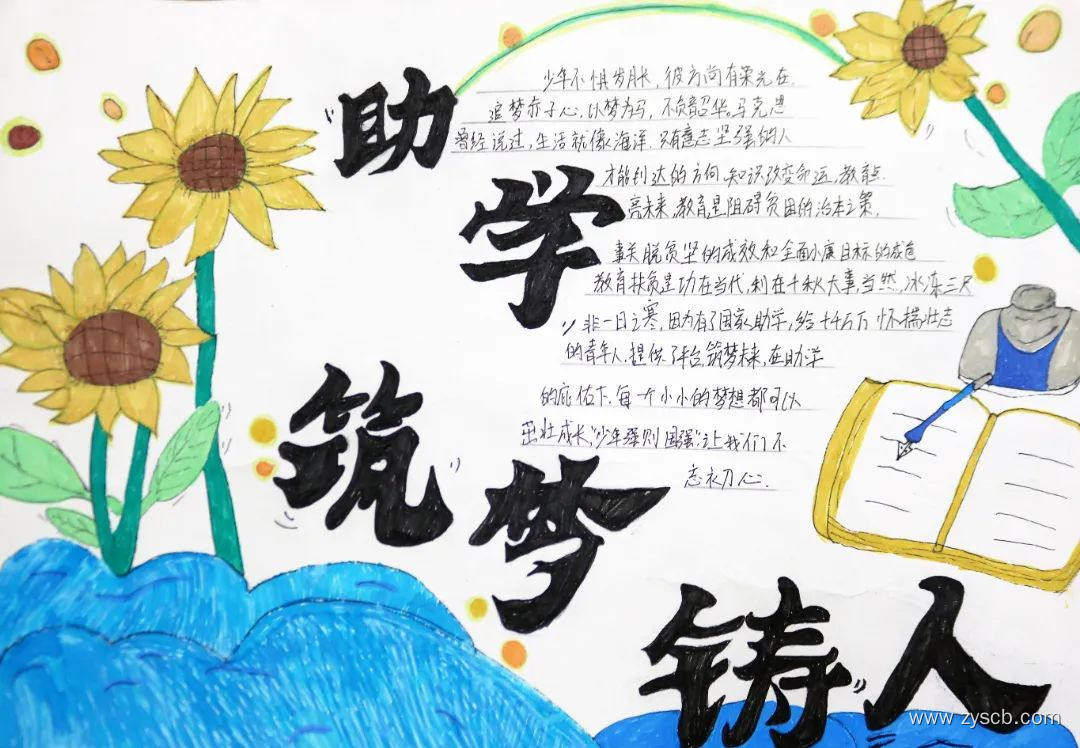 助学筑梦铸人
少年不惧岁月长，彼方尚有荣光在.
追梦赤子心.以梦为马，不负韶华。马克思
曾经说过，生活就像海洋.只有意志坚强的人
才能到达的方向.知识改变命运，教育点
亮未来，教育是阻碍贫困的治本之策.
事关脱贫坚的成效和全面小康目标的成色
教育扶贫是功在当代，利在千秋大事，当然，冰冻三尺
非一日之寒，因为有了国家助学，给千千万万怀揣壮志
的青年人.提供了平台，筑梦未来，在助学
的庇佑下.每一个小小的梦想都可以
茁壮成长，"少年强则国强"让我们不
忘初心.
www.zyscb.com